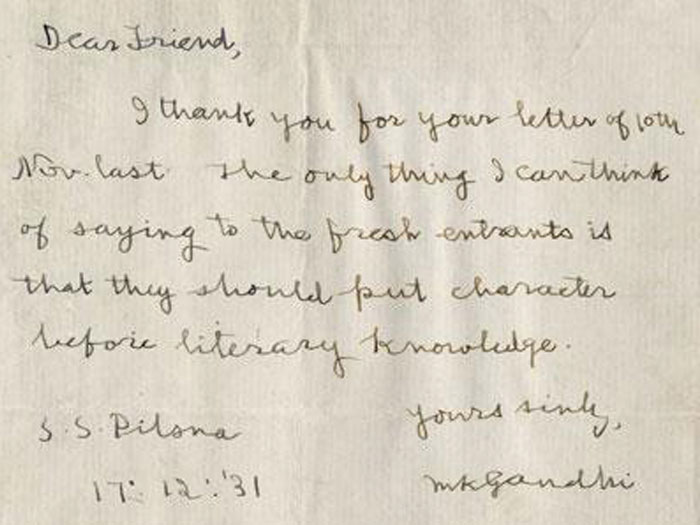 Dear Friend,
I thank you for your letter of 10th
Nov. last The only thing I can think
of saying to the fresh entrants is
that they should put character
before literary knowledge.
yours sinly,
S. S. Pilsna
mkGandhi
17: 12: '31